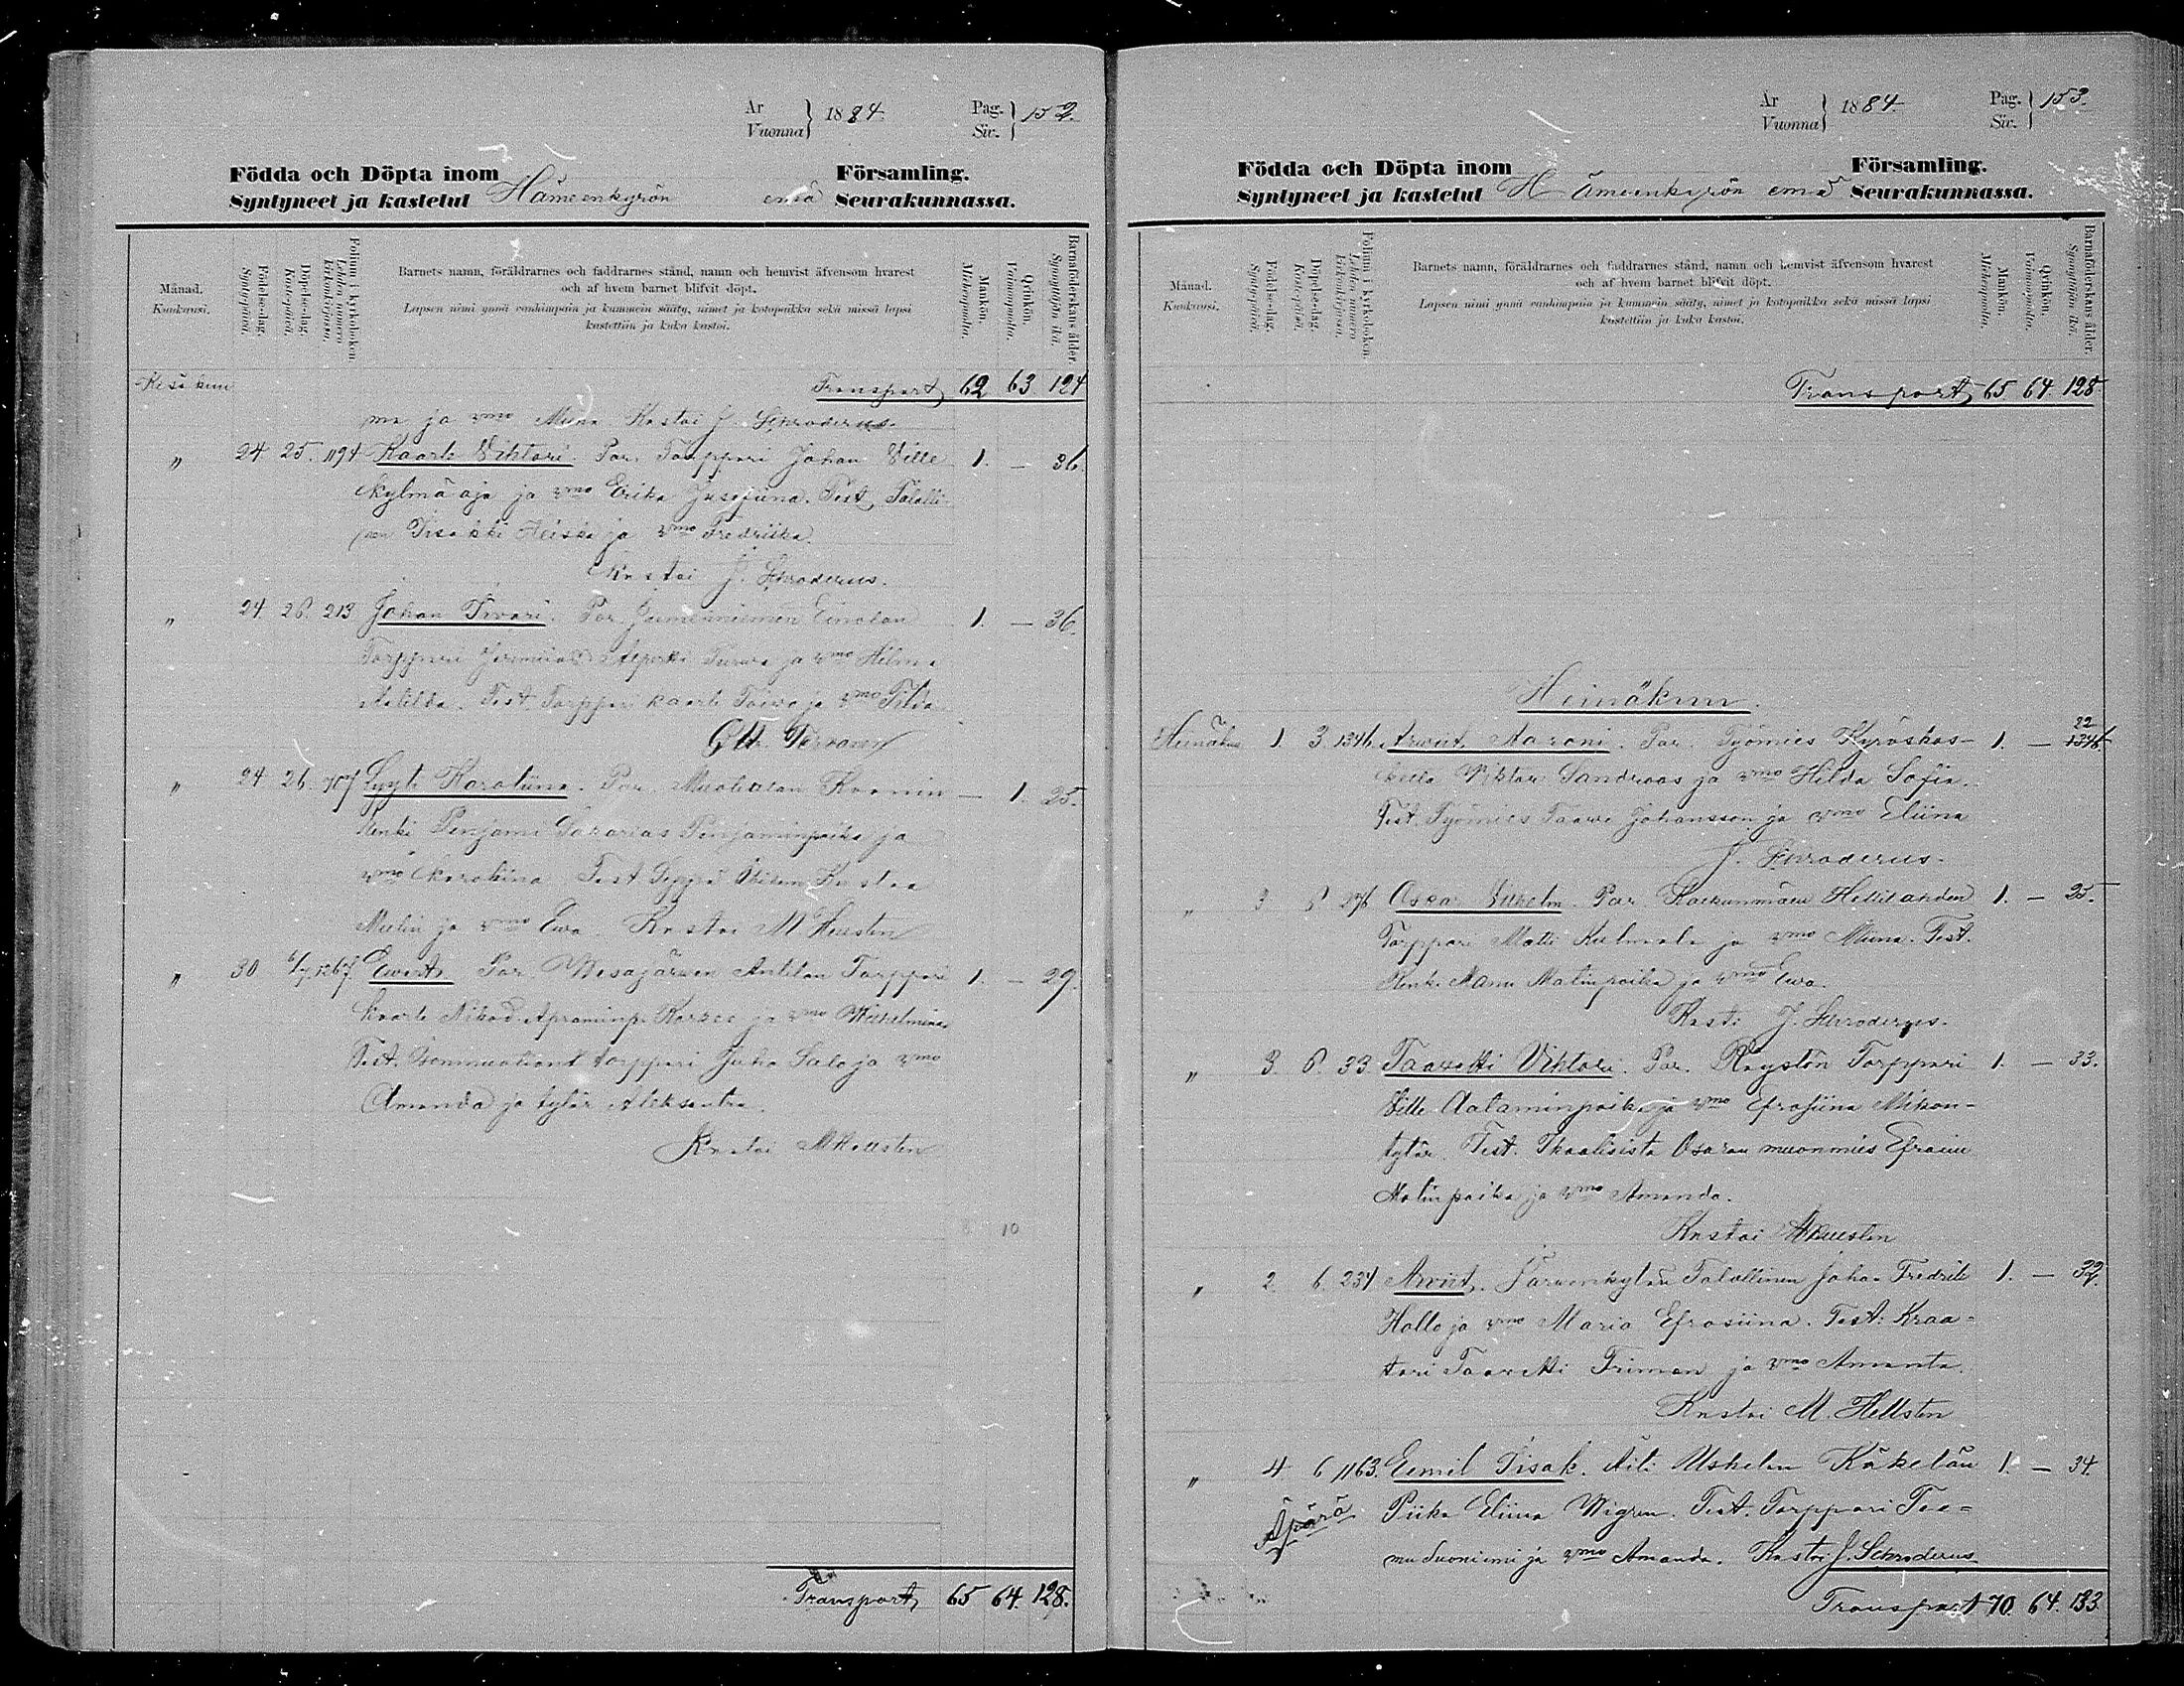 År
Vuonna } 1884.
Pag.
Siv. } 152.
Födda och Döpta inom
Syntyneet ja kastetut Hämeenkyrön emä
Församling.
Seurakunnassa.
Månad.
Kuukausi.
Födelse-dag.
Syntypäivä.
Döpelse-dag.
Kastepäivä.
Folium i kyrkoboken.
Lehden numero kirkonkirjassa.
Barnets namn, föräldrarnes och faddrarnes stånd, namn och hemvist äfvensom hvarest
och af hvem barnet blifvit döpt.
Lapsen nimi ynnä vanhimpain ja kummein sääty, nimet ja kotopaikka sekä missä lapsi
kastettiin ja kuka kastoi.
Mankön.
Miehenpuolta.
Qvinkön.
Vaimonpuolta.
Barnaföderskans ålder.
Synnyttäjän ikä.
Kesäkuu Transport 62 63 124
ma ja vmo Miina Kastoi J. Schroderus.
" 24 25. 1194 Kaarle Vihtori. Par. Torppari Johan Ville 1. — 36.
Kylmäoja ja vmo Erika Jusefiina. Test. Talolli-
nen Iisakki Heiska ja vmo Fredriika.
Kastoi J. Schroderus.
" 24 26. 213 Johan Iivari. Par. Jumesniemen Einolan 1. — 36.
Torppari ja vmo Hilma
Matilda. Test. Torppari Kaarle Toivo ja vmo Tilda
" 24 26. 707 Lyyti Karoliina. Par. — 1. 25.
Renki Penjami Sakarias Penjaminpoika ja
vmo Karoliina Test. Seppä Kustaa
ja vmo Ewa. Kastoi M Hellsten
" 30 6/7. 1267. Ewert. Par. Wesajärwen Anttilan Torppari 1. — 29.
Kaarle Nikod. ja vmo Wilhelmina
Test. torppari Juho Salo ja vmo
Amanda ja tytär Aleksantra.
Kastoi M Hellsten
10
Transport 65 64. 128.
År
Vuonna } 1884.
Pag.
Siv. } 153.
Födda och Döpta inom
Syntyneet ja kastetut Hämeenkyrön emä
Församling.
Seurakunnassa.
Månad.
Kuukausi.
Födelse-dag.
Syntypäivä.
Döpelse-dag.
Kastepäivä.
Folium i kyrkoboken.
Lehden numero kirkonkirjassa.
Barnets namn, föräldrarnes och faddrarnes stånd, namn och hemvist äfvensom hvarest
och af hvem barnet blifvit döpt.
Lapsen nimi ynnä vanhimpain ja kummein sääty, nimet ja kotopaikka sekä missä lapsi
kastettiin ja kuka kastoi.
Mankön.
Miehenpuolta.
Qvinkön.
Vaimonpuolta.
Barnaföderskans ålder.
Synnyttäjän ikä.
Transport 65 64. 128.
Heinäkuu.
22
Heinäkuu 1. 3. 1346. Arwiit Aaroni. Par. Työmies Kyröskos- 1. — 1346
kella Wiktor Sandroos ja vmo Hilda Sofia.
Test. Työmies Taawi Johansson ja vmo Eliina
J. Schroderus.
" 3 6 276 Oskar Wilhelm. Par. Kaikunmäen Hellilahden 1. — 25.
Torppari Matti Kulmala ja vmo Miina. Test.
Renki Manu Matinpoika ja vmo Ewa.
Kasti J. Schroderus.
" 3. 6. 33. Taavetti Vihtori. Par. Röystön Torppari 1. — 33.
Ville Aataminpoika ja vmo Efrosiina Mikon-
tytär. Test. Ikaalisista Osaran muonmies Efraim
Matinpoika ja vmo Amanda.
Kastoi M Hellsten
" 2. 6. 234 Arwiit. Järwenkylän Talollinen Johan Fredrik 1. — 32.
Hallo ja vmo Maria Efrosiina. Test: Kraa-
tari Taavetti Friman ja vmo Amanta.
Kastoi M. Hellsten
" 4 6 1163. Eemil Iisak. Äiti Uskelan Käkelän 1. — 34.
Äpärä Piika Eliina Wigren. Test. Torppari Tee-
mu Suoniemi ja vmo Amanda. Kastoi J. Schroderus
Transport 70. 64. 133.